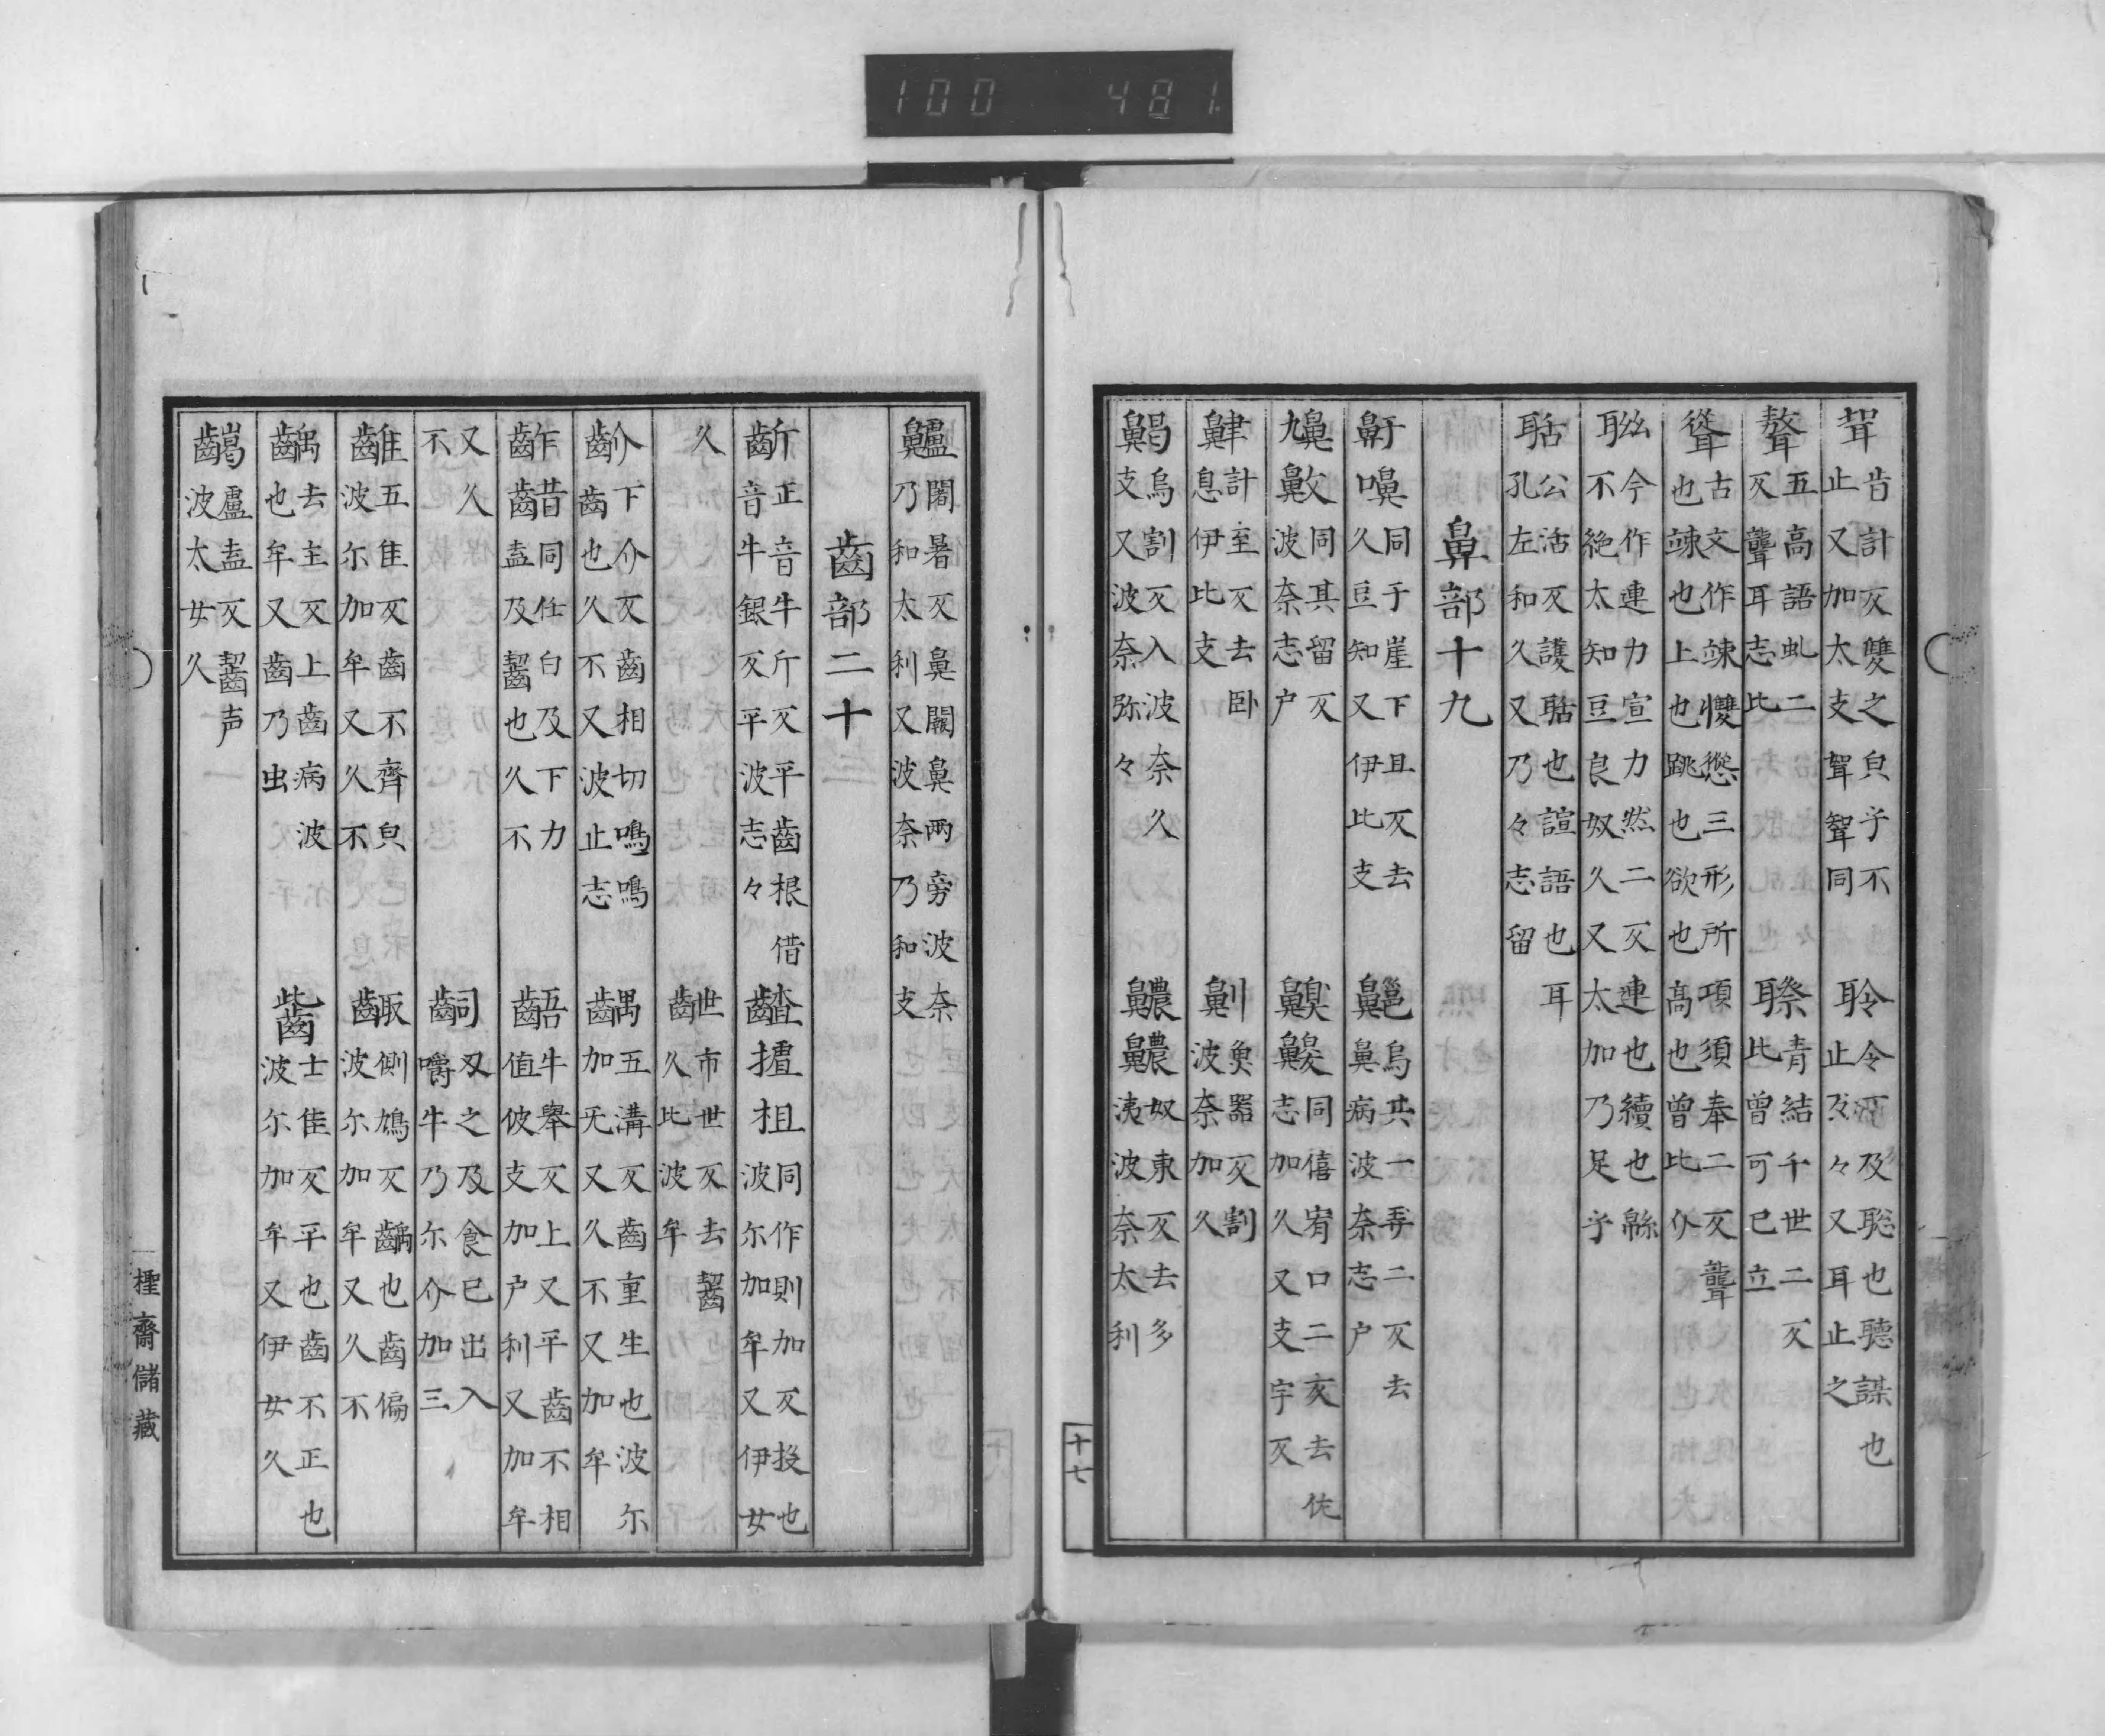 100 481
昔計反雙之皃予不
止又加太支聟聟同
聆
令
反及聡也聴謀也
止
々又耳止之
聱
五高語虬二
反聾耳志比
青結千世二反
比曾可已立
聳
古文作竦㦼慫三形所
也竦也上也跳也欲也
項須奉二反聾
高也曾比介
今作連力宣力然二反連也續也緜
不絶太知豆良奴久又太加乃足予
聒
公活反護聒也諠語也耳
孔左和久又乃々志留
鼻部十九
鼾嚊
同于崖下且反去
久豆知又伊比支
齆
烏共一弄二反去
鼻病波奈志户
同其留反
波奈志户
齅
同僖宥口二亥去
志加久又支宇反
計至反去卧
息伊比支
劓
魚器反割
波奈加久
烏割反入波奈久
支又波奈弥々
齈
奴東反去多
洟波奈太利
十七
闇暑反鼻闕鼻兩旁波奈
乃和太利又波奈乃和支
齒部二十
齗
正音牛斤反平齒根借
音牛銀反平波志々
齇摣柤
同作則加反扠也
波尓加牟又伊女
久
市世反去齧
久比波牟
齘
下介反齒相切鳴鳴
齒也久不又波止志
齵
五溝反齒重生也波尓
加无又久不又加牟
齰同仕白及下力
盍及齧也久不
齬
牛舉反上又平齒不相
値彼支加户利又加牟
又久
不
之及食已出入
嚼牛乃尓介加三
五隹反齒不齊皃
波尓加牟又久不
側鳩反齵也齒偏
波尓加牟又久不
齲
去主反上齒病波
也牟又齒乃虫
士佳反平也齒不正也
波尓加牟又伊女久
盧盍反齧声
波太女久
橦齋儲藏